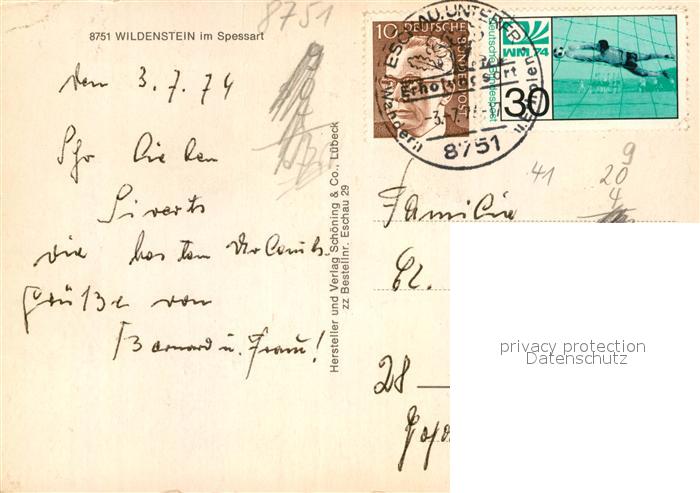 8751
8751 WILDENSTEIN im Spessart
den 3.7.74
Ihr Lieben
Siverts
die besten Urlaubs
grüße von
Bernard u. Frau!
Hersteller und Verlag Schöning & Co., Lübeck
zz Bestellnr. Eschau 29
10 DEUTSCHE BUNDESPOST
Deutsche Bundespost
WM 74
30
ESCHAU, UNTERER
Erholungsort
Wandern u.
-3.-7.74
8751
41
9
20
4
Familie
28
privacy protection
Datenschutz